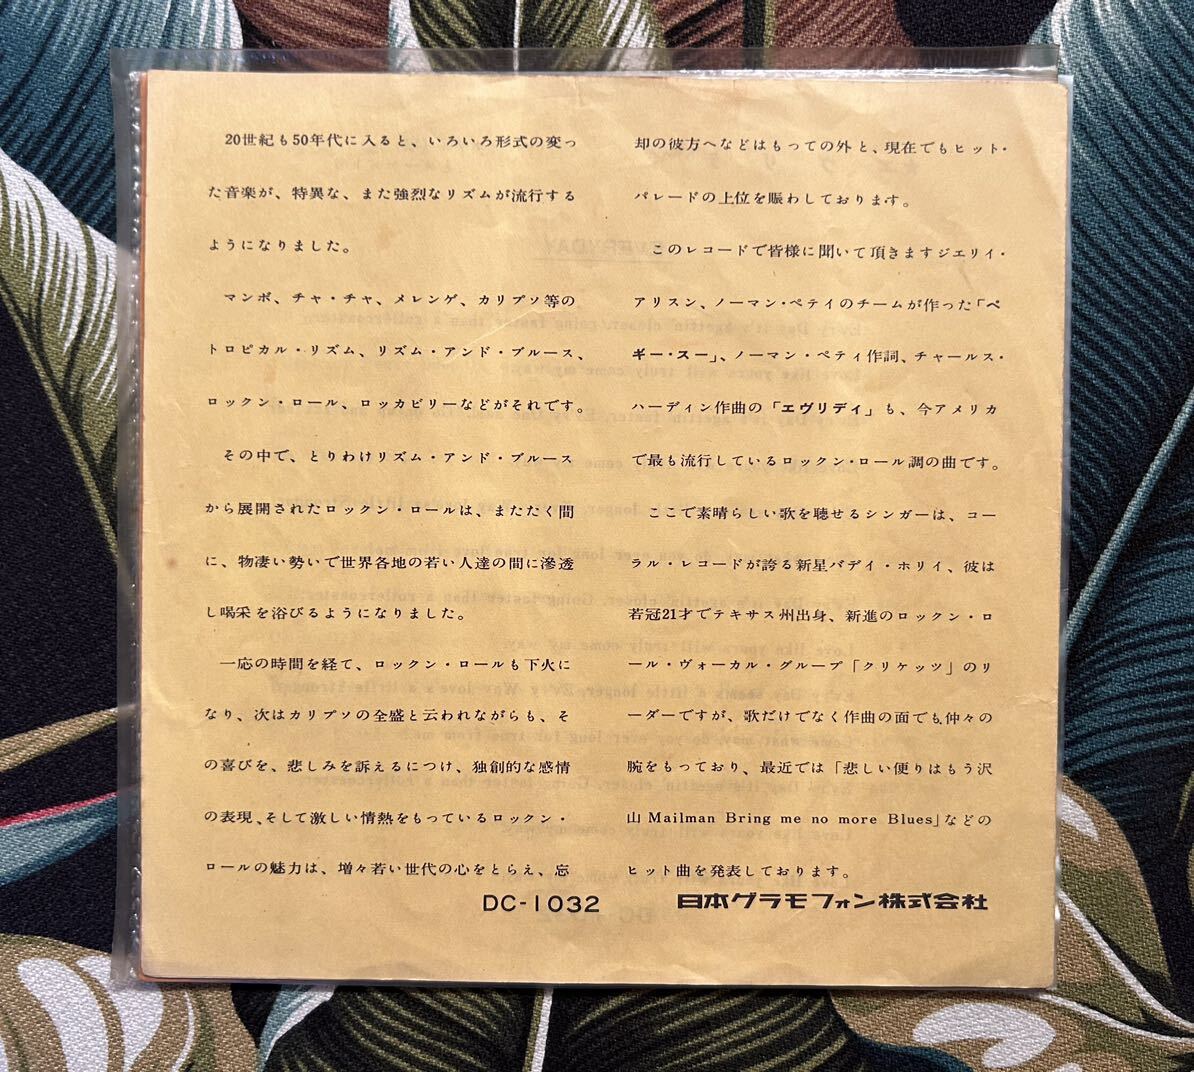 20世紀も50年代に入ると、いろいろ形式の変っ
た音楽が、特異な、また強烈なリズムが流行する
ようになりました。
マンボ、チャ・チャ、メレンゲ、カリプソ等の
トロピカル・リズム、リズム・アンド・ブルース、
ロックン・ロール、ロッカビリーなどがそれです。
その中で、とりわけリズム・アンド・ブルース
から展開されたロックン・ロールは、またたく間
に、物凄い勢いで世界各地の若い人達の間に滲透
し喝采を浴びるようになりました。
一応の時間を経て、ロックン・ロールも下火に
なり、次はカリプソの全盛と云われながらも、そ
の喜びを、悲しみを訴えるにつけ、独創的な感情
の表現、そして激しい情熱をもっているロックン・
ロールの魅力は、増々若い世代の心をとらえ、忘
却の彼方へなどはもっての外と、現在でもヒット・
パレードの上位を賑わしております。
このレコードで皆様に聞いて頂きますジエリイ・
アリスン、ノーマン・ペテイのチームが作った「ペ
ギー・スー」、ノーマン・ペティ作詞、チャールス・
ハーディン作曲の「エヴリデイ」も、今アメリカ
で最も流行しているロックン・ロール調の曲です。
ここで素晴らしい歌を聴せるシンガーは、コー
ラル・レコードが誇る新星バデイ・ホリイ、彼は
若冠21才でテキサス州出身、新進のロックン・ロ
ール・ヴォーカル・グループ「クリケッツ」のリ
ーダーですが、歌だけでなく作曲の面でも仲々の
腕をもっており、最近では「悲しい便りはもう沢
山 Mailman Bring me no more Blues」などの
ヒット曲を発表しております。
DC-1032 日本グラモフォン株式会社